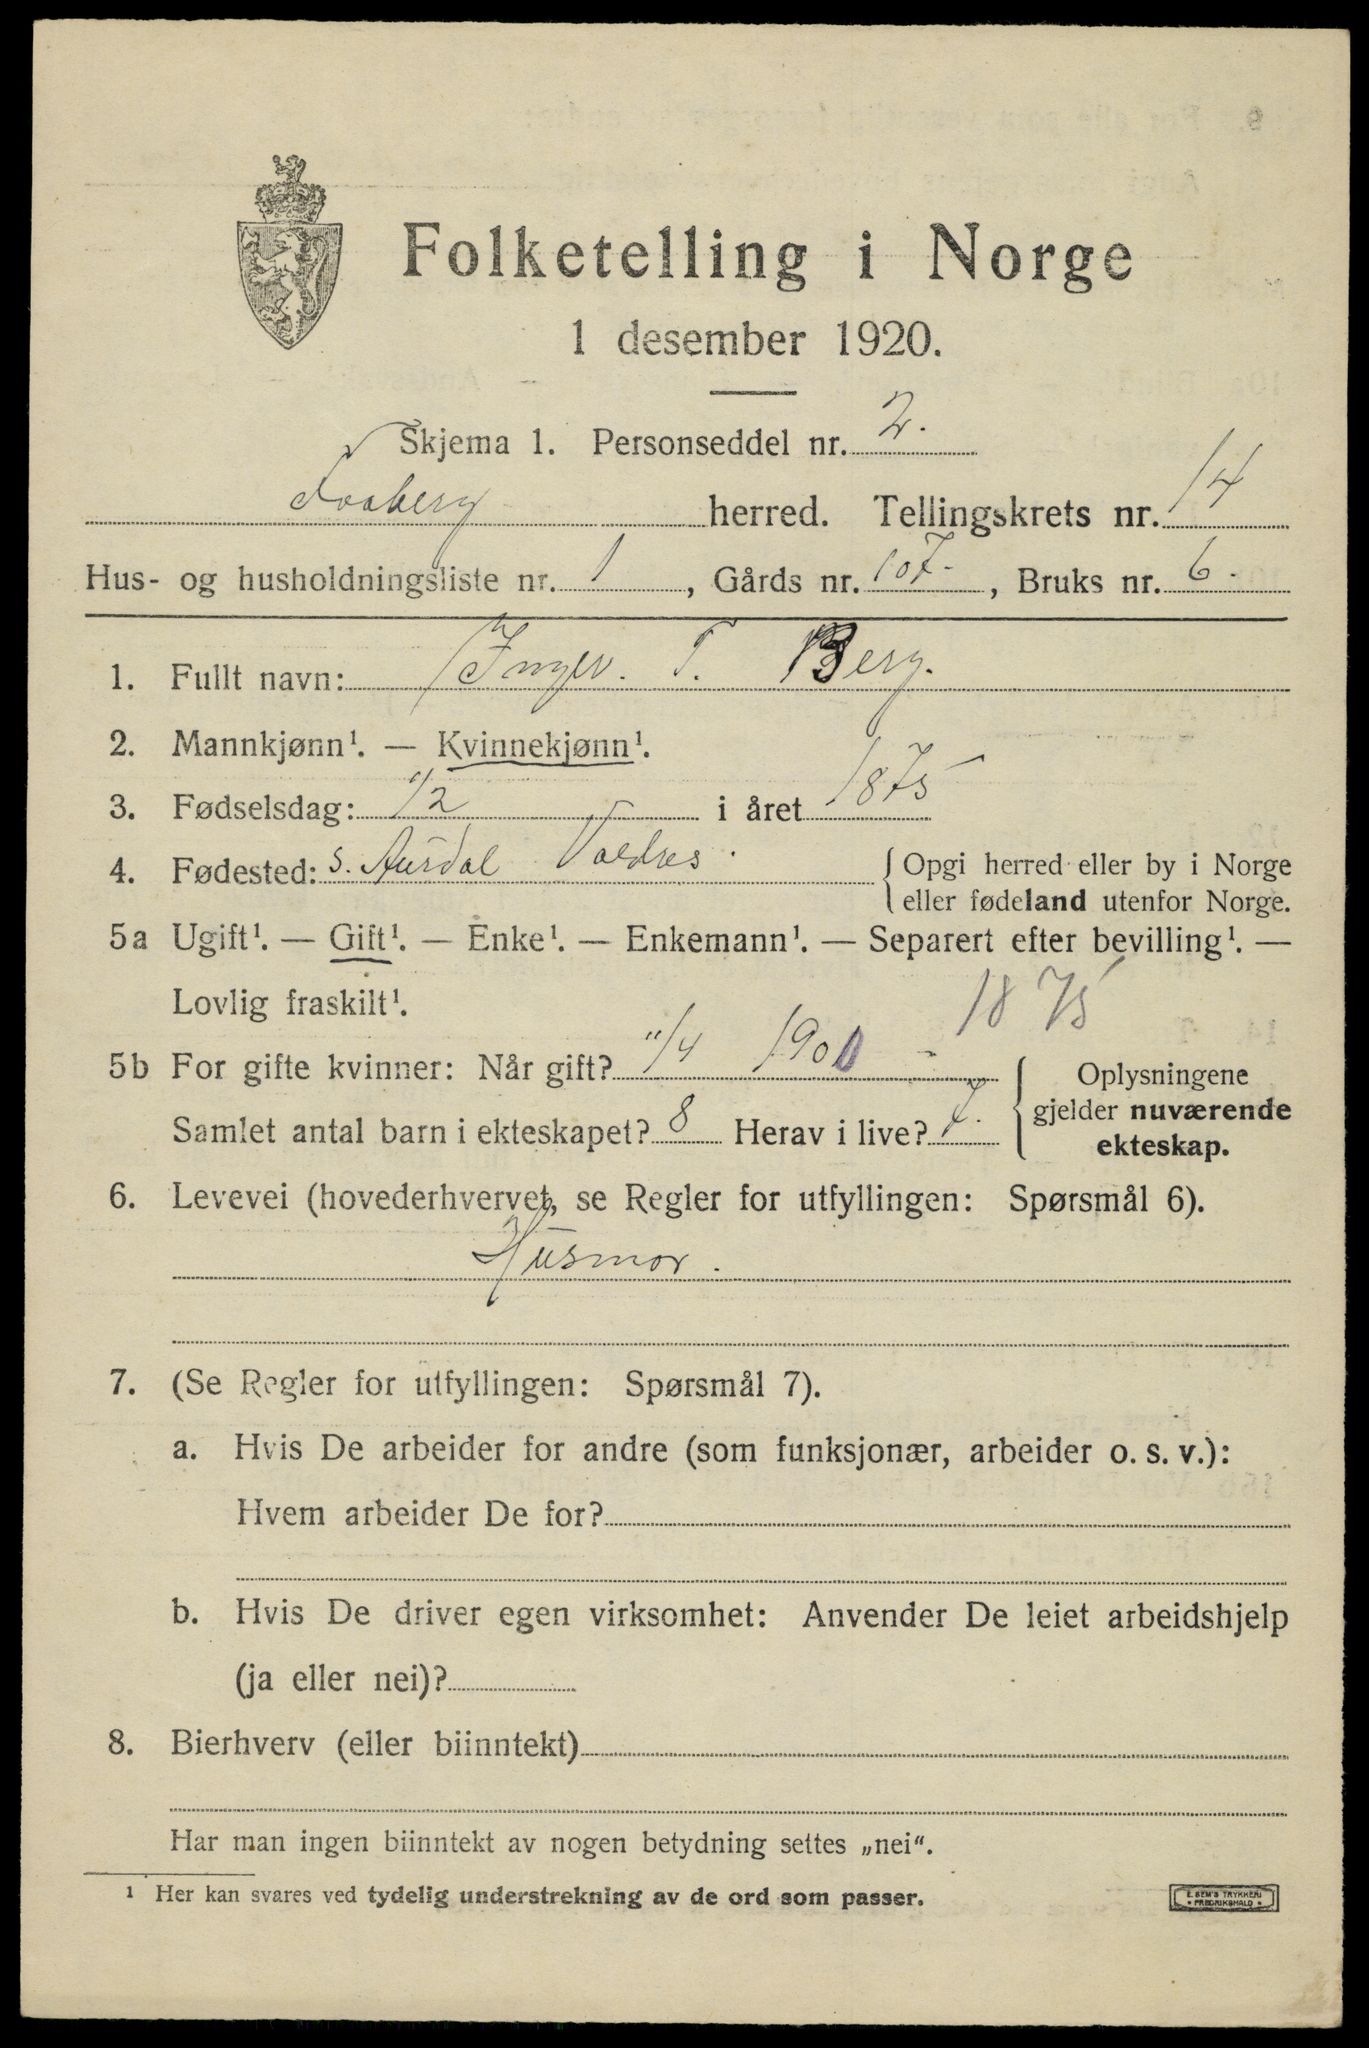 Folketelling i Norge
1 desember 1920.
Skjema 1. Personseddel nr. 2.
Faaberg herred. Tellingskrets nr. 14
Hus- og husholdningsliste nr. 1, Gårds nr. 107-, Bruks nr. 6.
1. Fullt navn: Inger. T. Berg.
2. Mannkjønn¹. — Kvinnekjønn¹.
3. Fødselsdag: 1/2 i året 1875
4. Fødested: S. Aurdal Valdres. { Opgi herred eller by i Norge
eller fødeland utenfor Norge.
5a Ugift¹. — Gift¹. — Enke¹. — Enkemann¹. — Separert efter bevilling¹. —
Lovlig fraskilt¹.
1875
5b For gifte kvinner: Når gift? 11/4 1900 - { Oplysningene
gjelder nuværende
ekteskap.
Samlet antal barn i ekteskapet? 8 Herav i live? 7.
6. Levevei (hovederhvervet, se Regler for utfyllingen: Spørsmål 6).
Husmor.
7. (Se Regler for utfyllingen: Spørsmål 7).
a. Hvis De arbeider for andre (som funksjonær, arbeider o. s. v.):
Hvem arbeider De for?
b. Hvis De driver egen virksomhet: Anvender De leiet arbeidshjelp
(ja eller nei)?
8. Bierhverv (eller biinntekt)
Har man ingen biinntekt av nogen betydning settes „nei“.
¹ Her kan svares ved tydelig understrekning av de ord som passer.
E. SEM'S TRYKKERI
FREDRIKSHALD